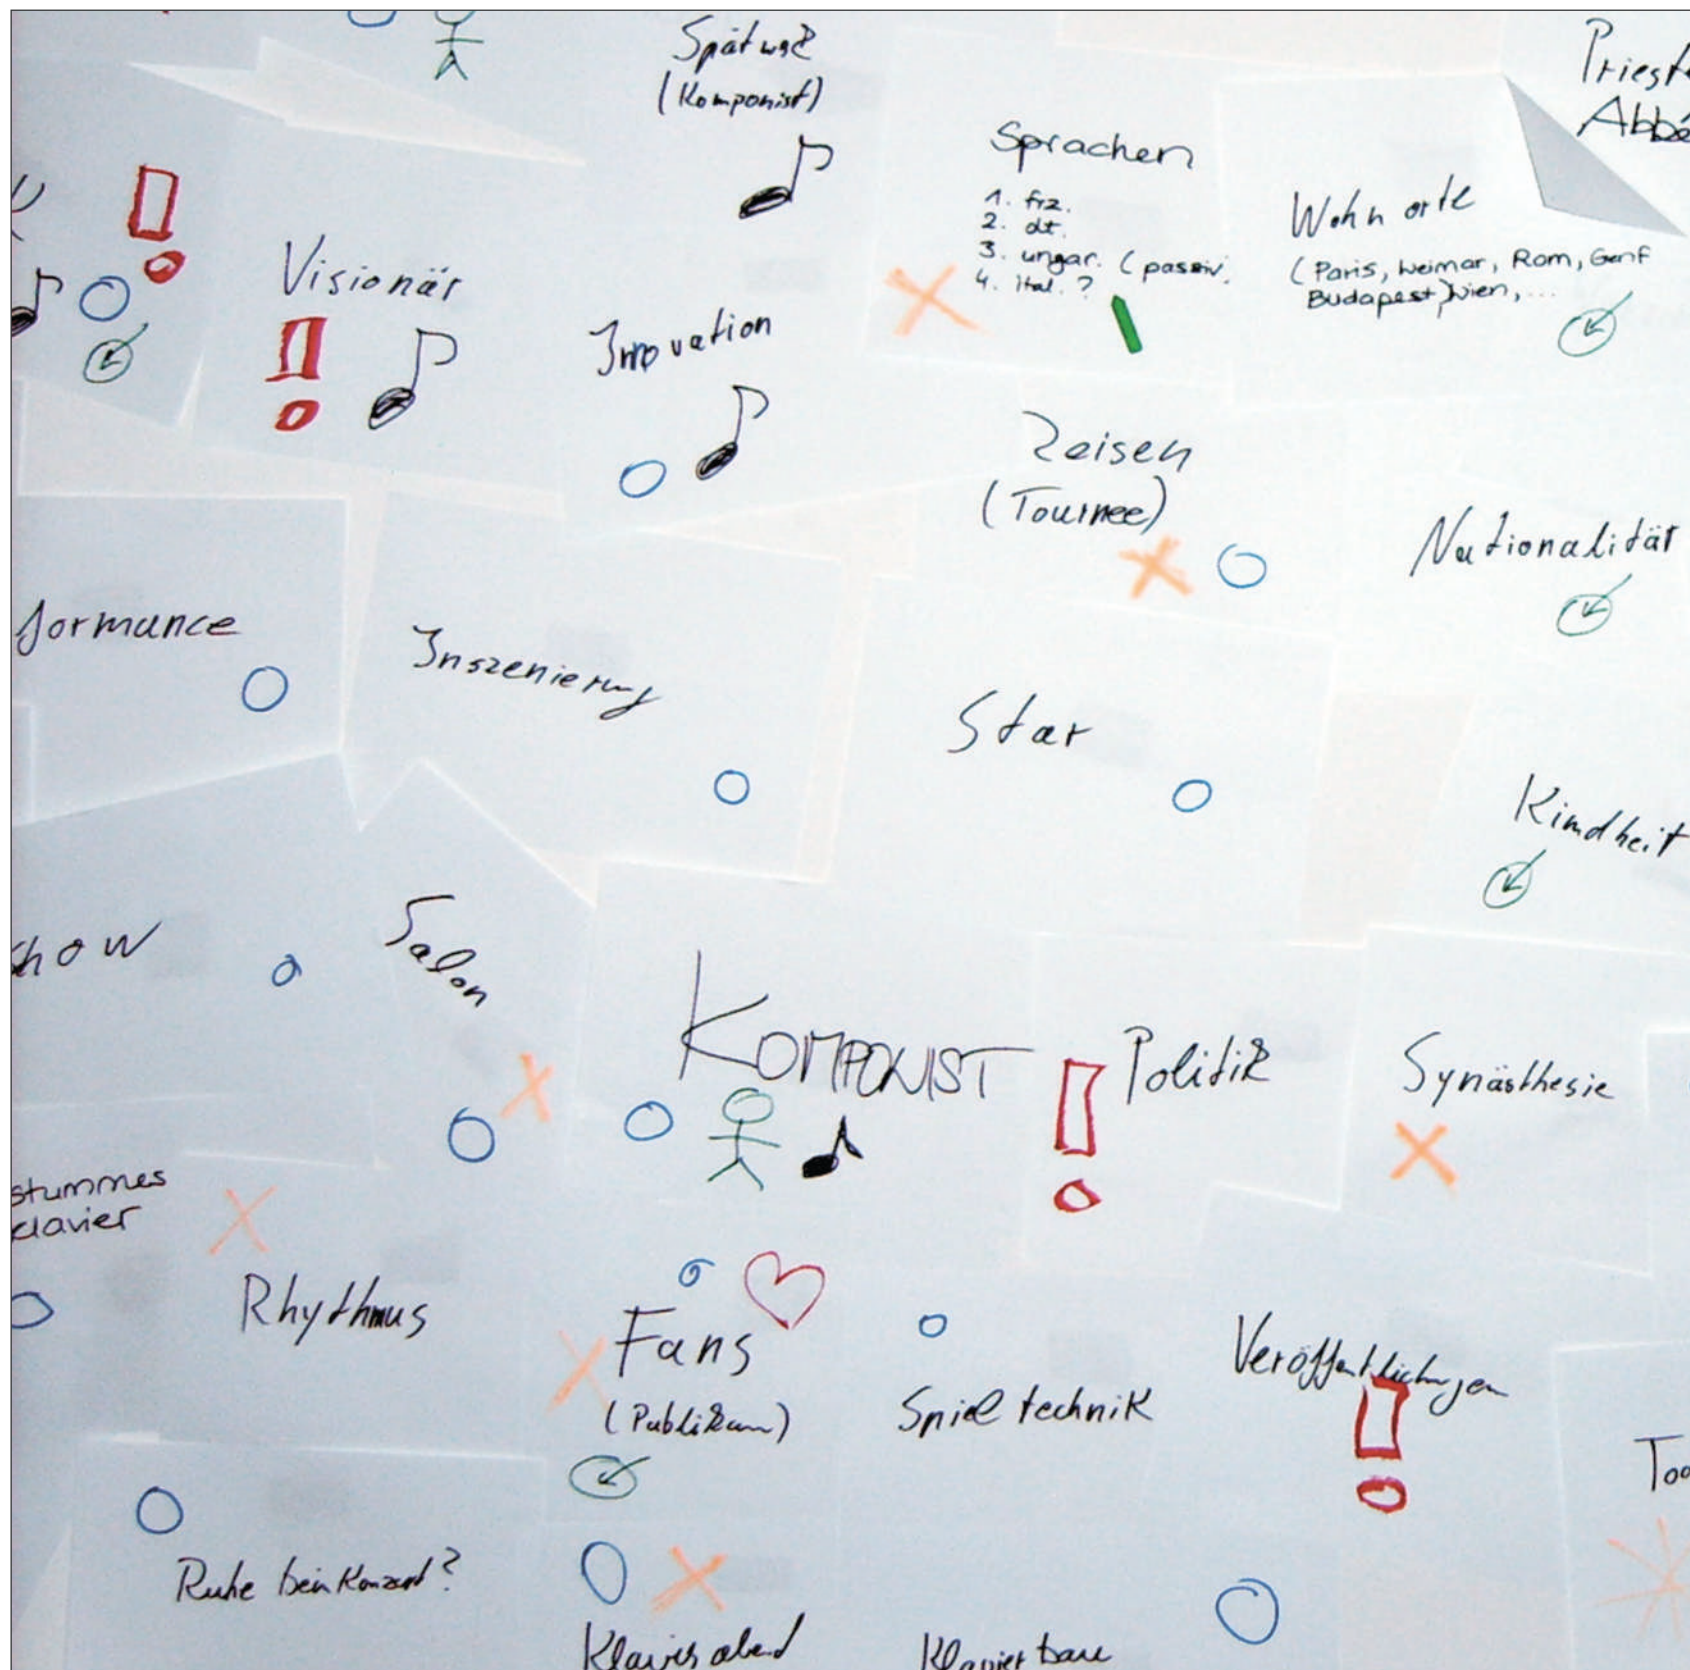 Spätwerk
(Komponist)
Prieste
Abbé
Sprachen
1. frz.
2. dt.
3. ungar. (passiv.
4. ital. ?
Wohnorte
(Paris, Weimar, Rom, Genf
Budapest, Wien, ...
Visionär
Innovation
Reisen
(Tournee)
Nationalität
formance
Inszenierung
Star
Kindheit
how
Salon
KOMPONIST
Politik
Synästhesie
stummes
clavier
Rhythmus
Fans
(Publikum)
Spieltechnik
Veröffentlichungen
Too
Ruhe beim Konzert?
Klavierabend
Klavierbau